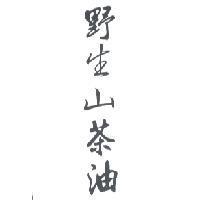 野生山茶油